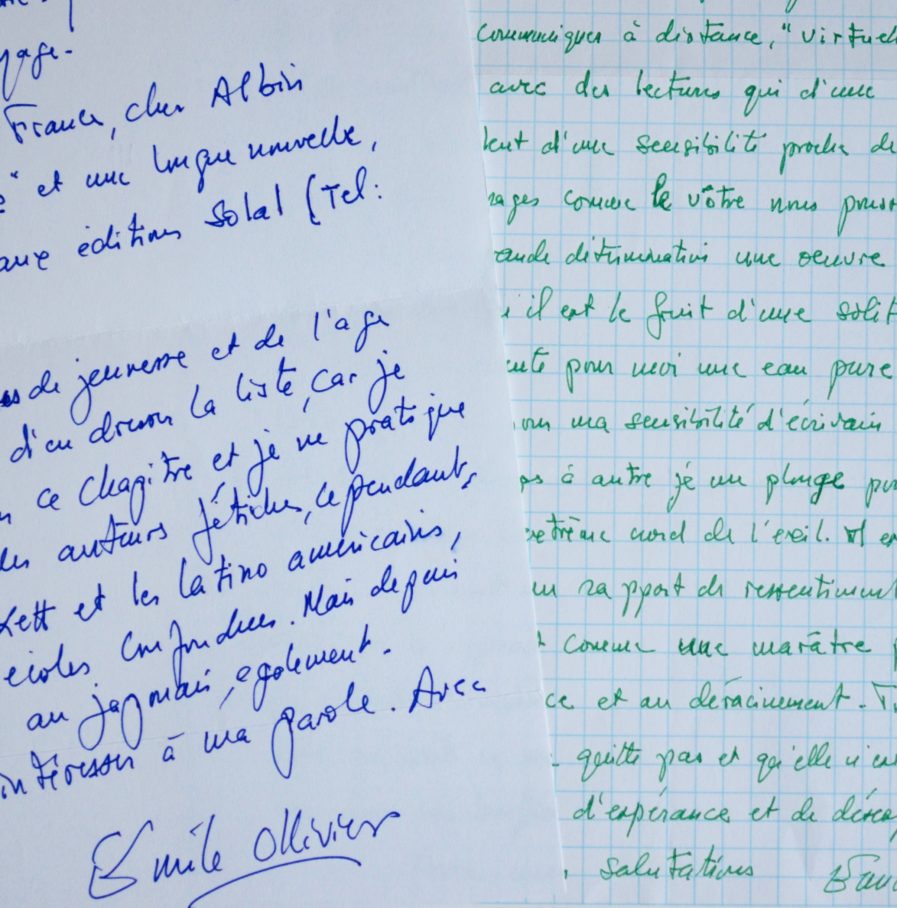 yage.
France, cher Albin
" et une langue nouvelle,
aux éditions Solal (Tel:
de jeunesse et de l'age
d'en dresser la liste, car je
ce chapitre et je ne pratique
auteurs fétiches, cependant,
kett et les latino américains,
écoles confondues. Mais depuis
au japonais, egalement.
intéresser à ma parole. Avec
Emile Ollivier
communiquer à distance, "virtuel
avec des lecteurs qui d'une
d'une sensibilité proche de
comme le vôtre nous
détermination une oeuvre
il est le fruit d'une solit
pour moi une eau pure
ma sensibilité d'écrivain
à autre je me plonge
nord de l'exil. Il
un rapport de ressentiment
comme une marâtre
ce et au déracinement.
quitte pas et qu'elle
d'espérance et de
salutations